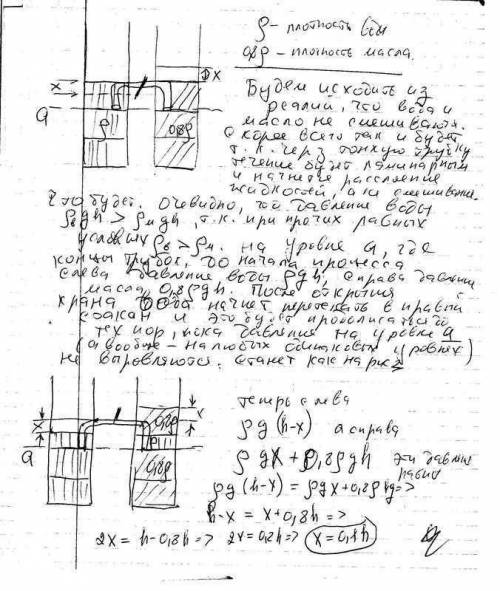 ρ - плотность воды
0,8ρ - плотность масла.
x
x
a
ρ
0,8ρ
Будем исходить из
реалии, что вода и
масло не смешиваются.
Скорее всего так и будет
т.к. через тонкую трубку
течение будет ламинарным
и начнётся расслоение
жидкостей, а не смешивание.
Что будет. Очевидно, что давление воды
ρвgh > ρмgh, т.к. при прочих равных
условиях ρв > ρм. На уровне a, где
концы трубок, до начала процесса
слева давление воды ρgh, справа давление
масла 0,8ρgh. После открытия
крана вода начнет перетекать в правый
стакан и это будет продолжаться до
тех пор, пока давления на уровне a
(а вообще - на любых одинаковых уровнях)
не выровняются. Станет как на рис 2
x
a
0,8ρ
ρ
0,8ρ
x
теперь слева
ρg(h-x) а справа
ρgx + 0,8ρgh эти давления
равны
ρg(h-x) = ρgx + 0,8ρhg =>
h-x = x + 0,8h =>
2x = h - 0,8h => 2x = 0,2h => x = 0,1h